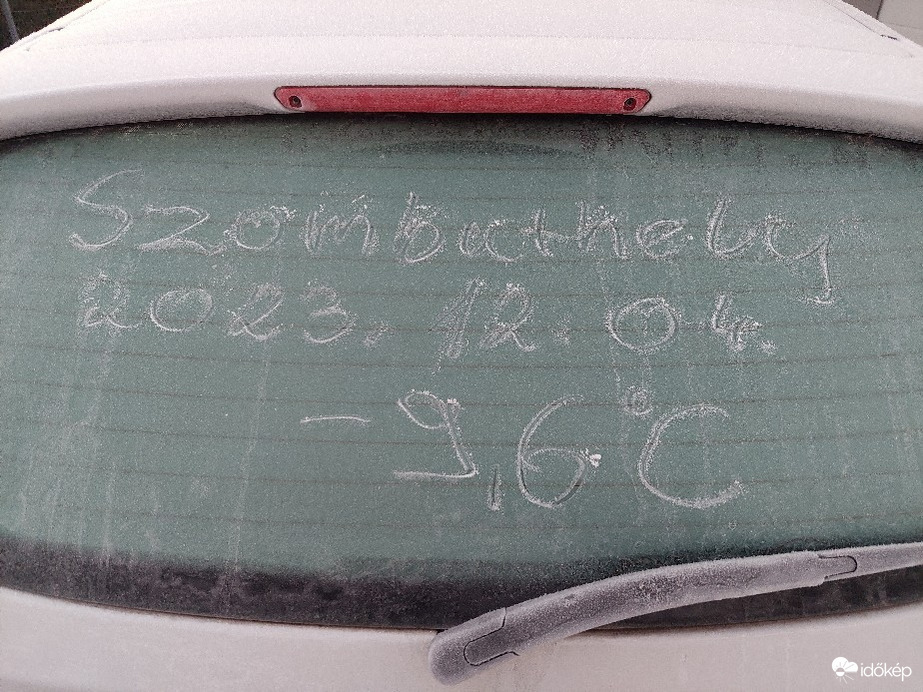 Szombathely
2023. 12. 04.
-9,6°C
időkép